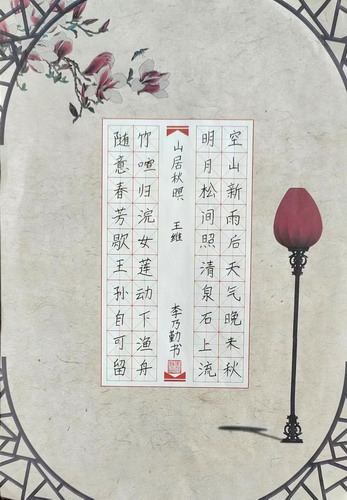 空山新雨后天气晚来秋
明月松间照清泉石上流
山居秋暝 王维 李乃勤书
竹喧归浣女莲动下渔舟
随意春芳歇王孙自可留